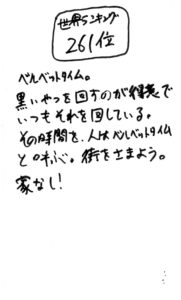 世界ランキング
261位
ベルベットタイム。
黒いやつを回すのが得意で
いつもそれを回している。
その時間を、人はベルベットタイム
と呼ぶ。街をさまよう。
家なし!